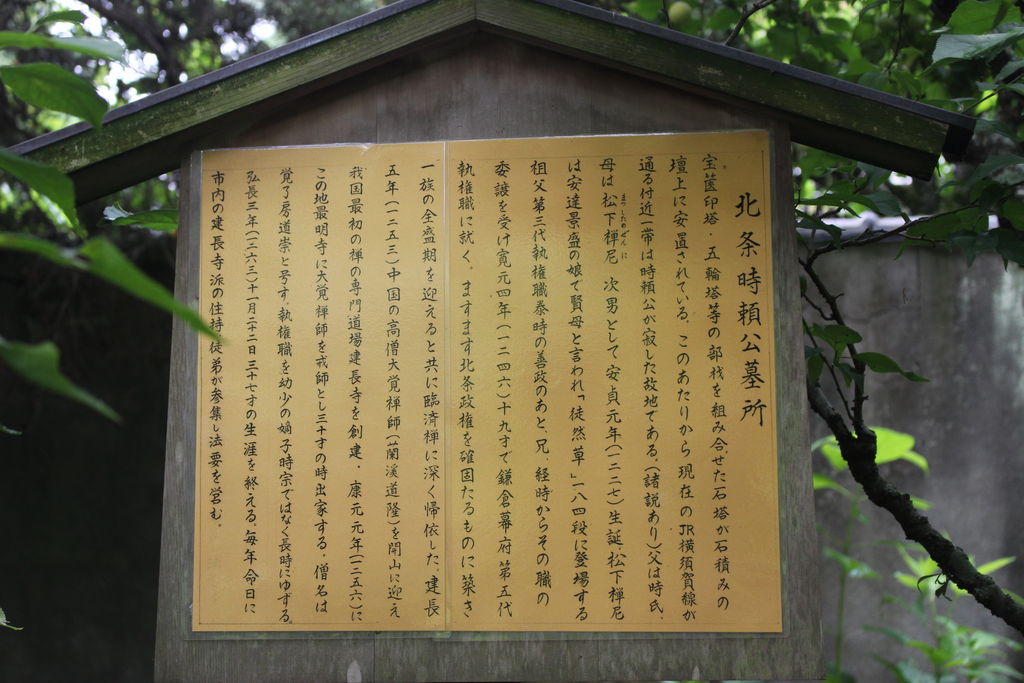 北条時頼公墓所
宝篋印塔・五輪塔等の部材を組み合せた石塔が石積みの
壇上に安置されている。このあたりから現在のJR横須賀線が
通る付近一帯は時頼公が寂した故地である。(諸説あり)父は時氏、
母は松下禅尼 次男として安貞元年(一二二七)生誕、松下禅尼
まつしたのぜんに
は安達景盛の娘で賢母と言われ「徒然草」一八四段に登場する
祖父第三代執権職泰時の善政のあと、兄、経時からその職の
委譲を受け寛元四年(一二四六)十九才で鎌倉幕府第五代
執権職に就く。ますます北条政権を確固たるものに築き
一族の全盛期を迎えると共に臨済禅に深く帰依した。建長
五年(一二五三)中国の高僧大覚禅師(蘭溪道隆)を開山に迎え
我国最初の禅の専門道場建長寺を創建・康元元年(一二五六)に
この地最明寺に大覚禅師を戒師とし三十才の時出家する。僧名は
覚了房道崇と号す。執権職を幼少の嫡子時宗ではなく長時にゆずる。
弘長三年(一二六三)十一月二十二日三十七才の生涯を終える。毎年命日に
市内の建長寺派の住持、徒弟が参集し法要を営む。